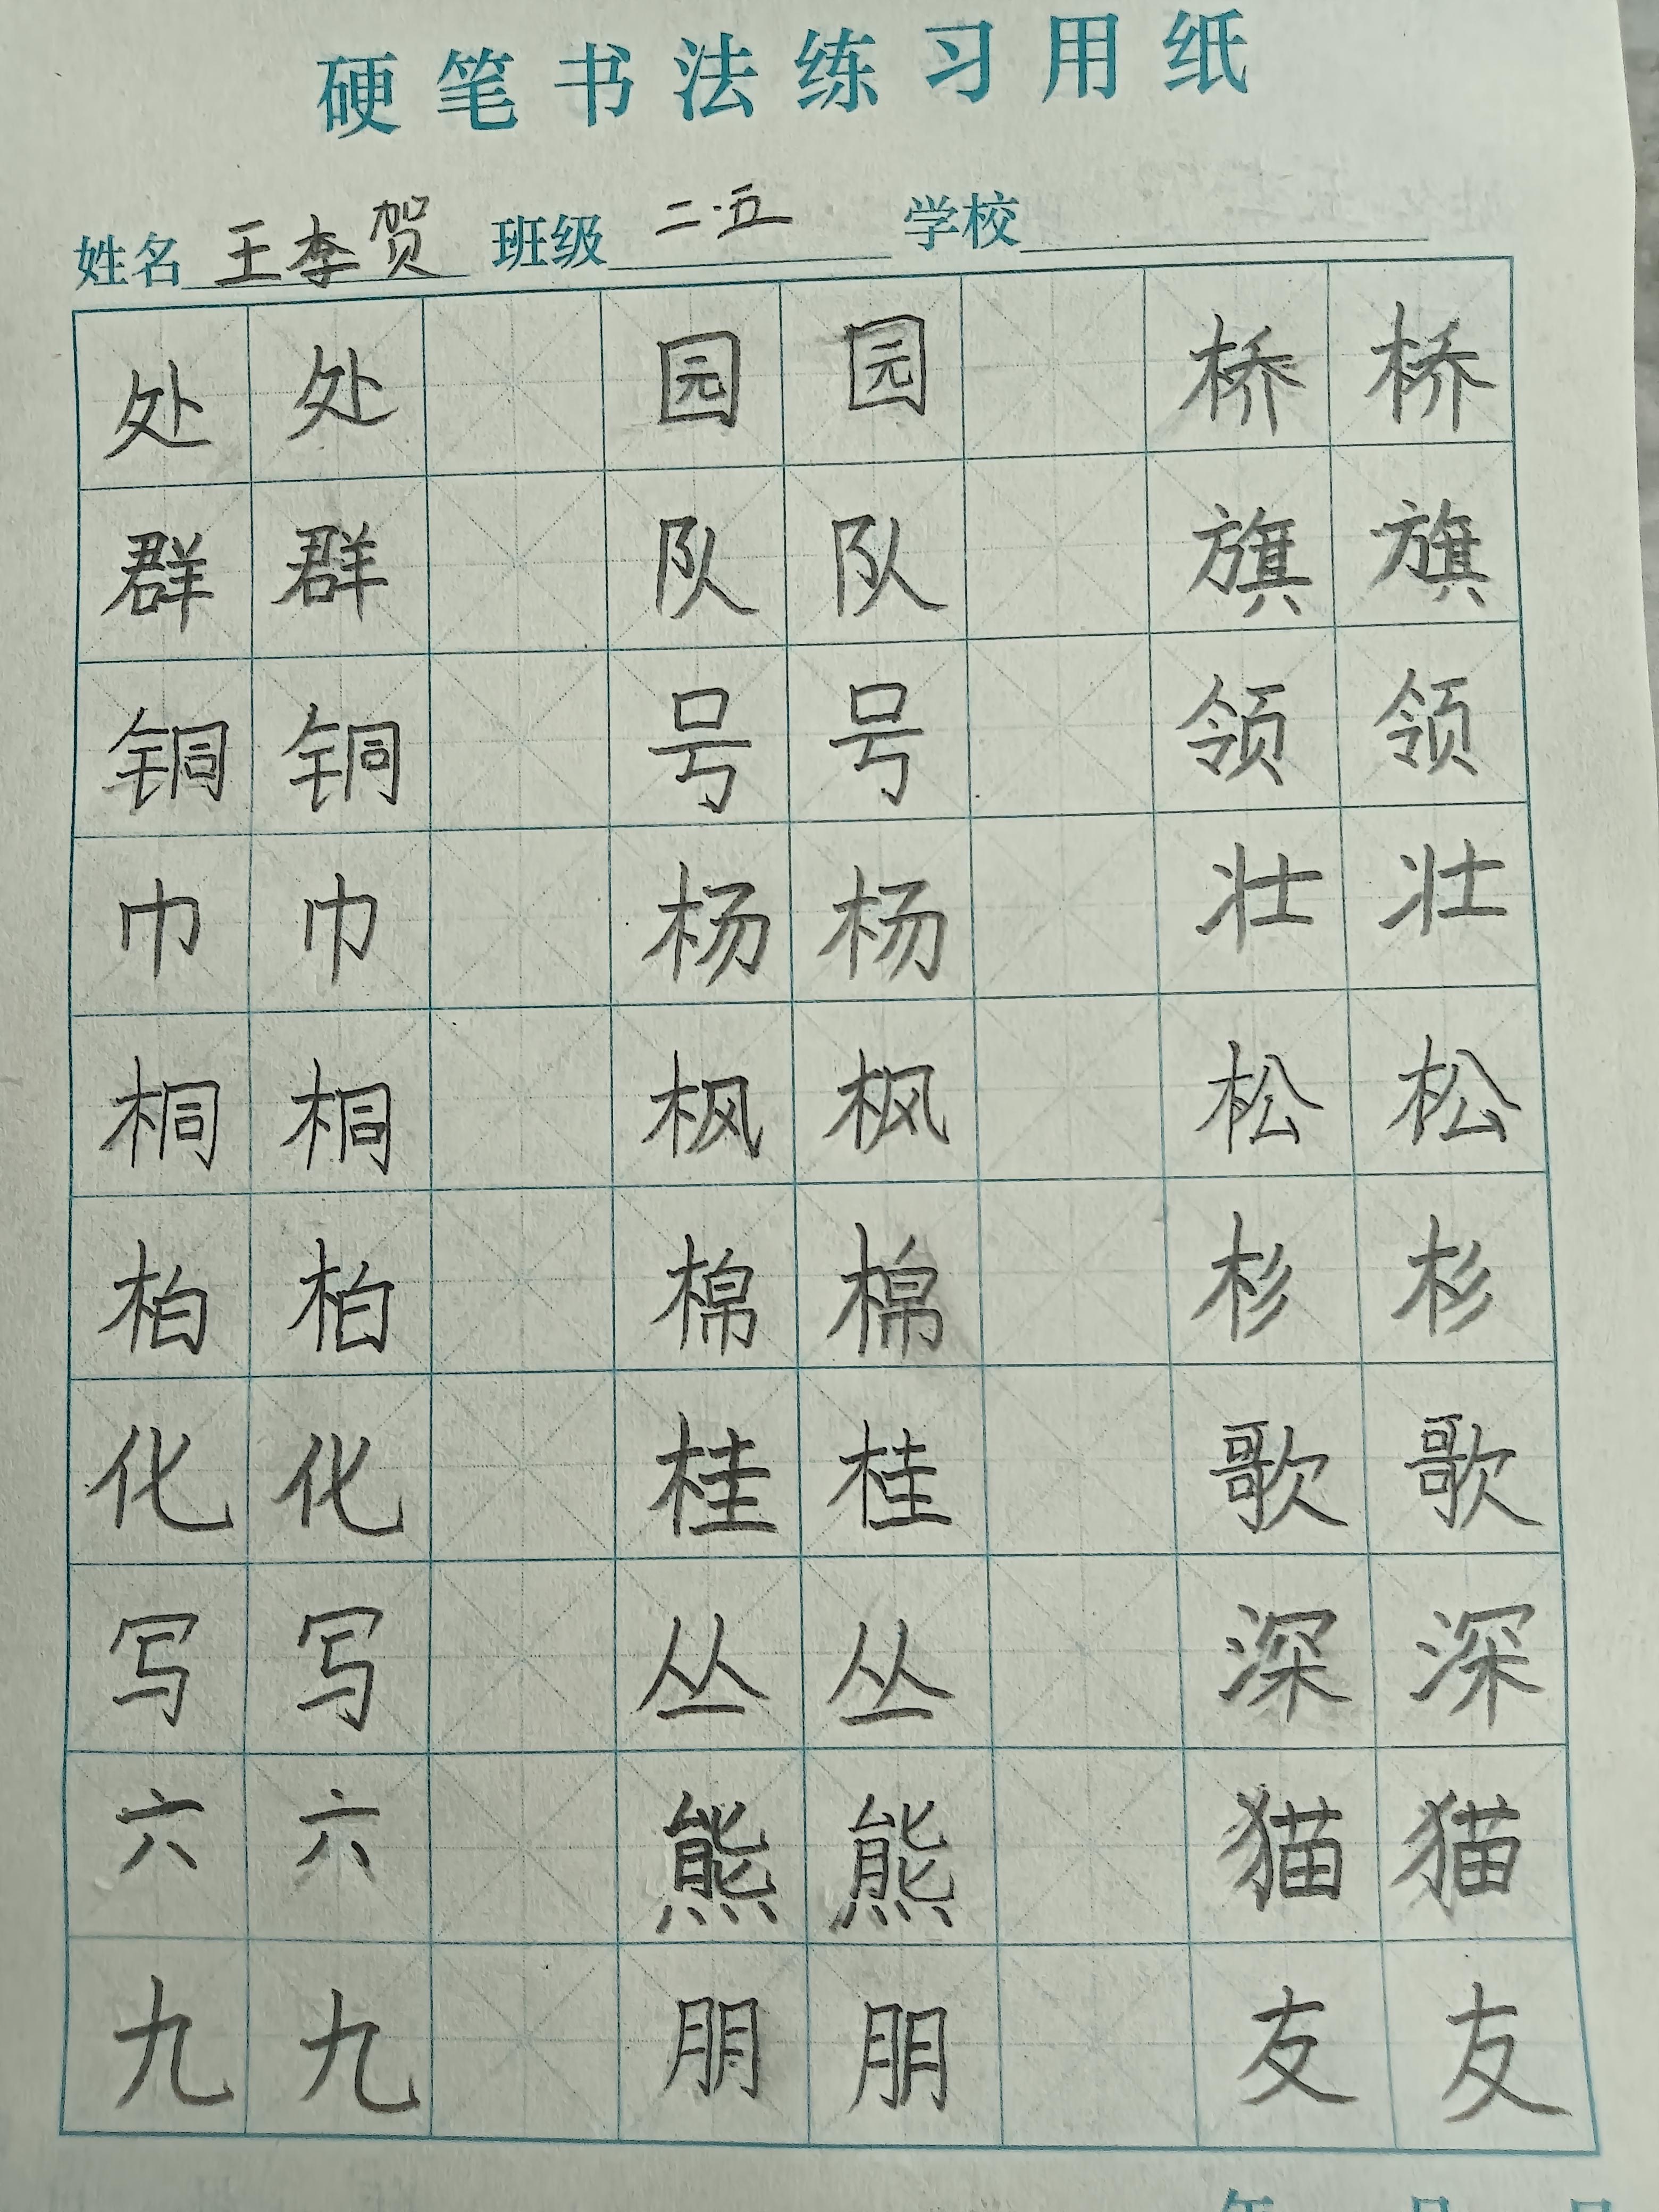 硬笔书法练习用纸
姓名 王李贺 班级 二.五 学校
处 处 园 园 桥 桥
群 群 队 队 旗 旗
铜 铜 号 号 领 领
巾 巾 杨 杨 壮 壮
桐 桐 枫 枫 松 松
柏 柏 棉 棉 杉 杉
化 化 桂 桂 歌 歌
写 写 丛 丛 深 深
六 六 熊 熊 猫 猫
九 九 朋 朋 友 友
年 月 日